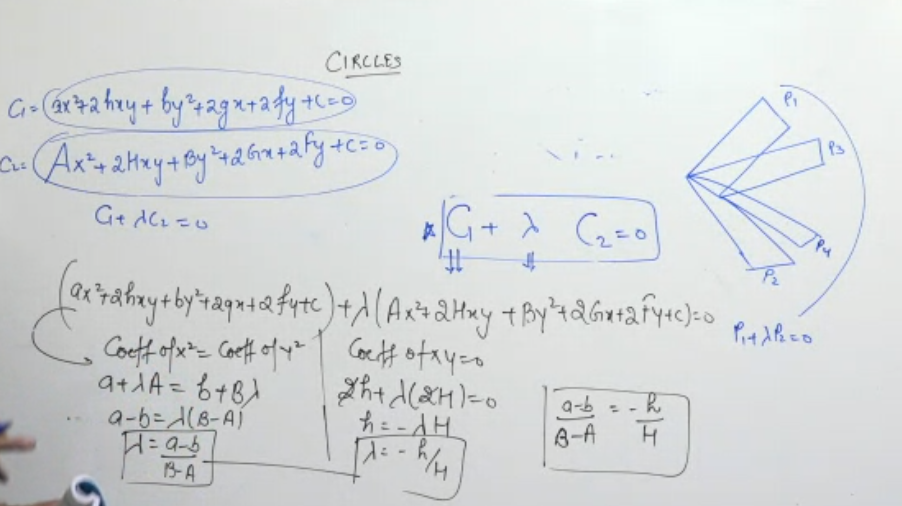 CIRCLES
C₁ = (ax²+2hxy+by²+2gx+2fy+c=0)
C₂ = (Ax²+2Hxy+By²+2Gx+2Fy+c=0)
C₁+λC₂=0
* C₁ + λ C₂=0
P₁
P₃
P₄
P₂
P₁+λP₂=0
(ax²+2hxy+by²+2gx+2fy+c)+λ(Ax²+2Hxy+By²+2Gx+2Fy+c)=0
Coeff of x² = Coeff of y²
a+λA = b+Bλ
a-b=λ(B-A)
λ = (a-b)/(B-A)
Coeff of xy=0
2h+λ(2H)=0
h=-λH
λ=-h/H
(a-b)/(B-A) = -h/H